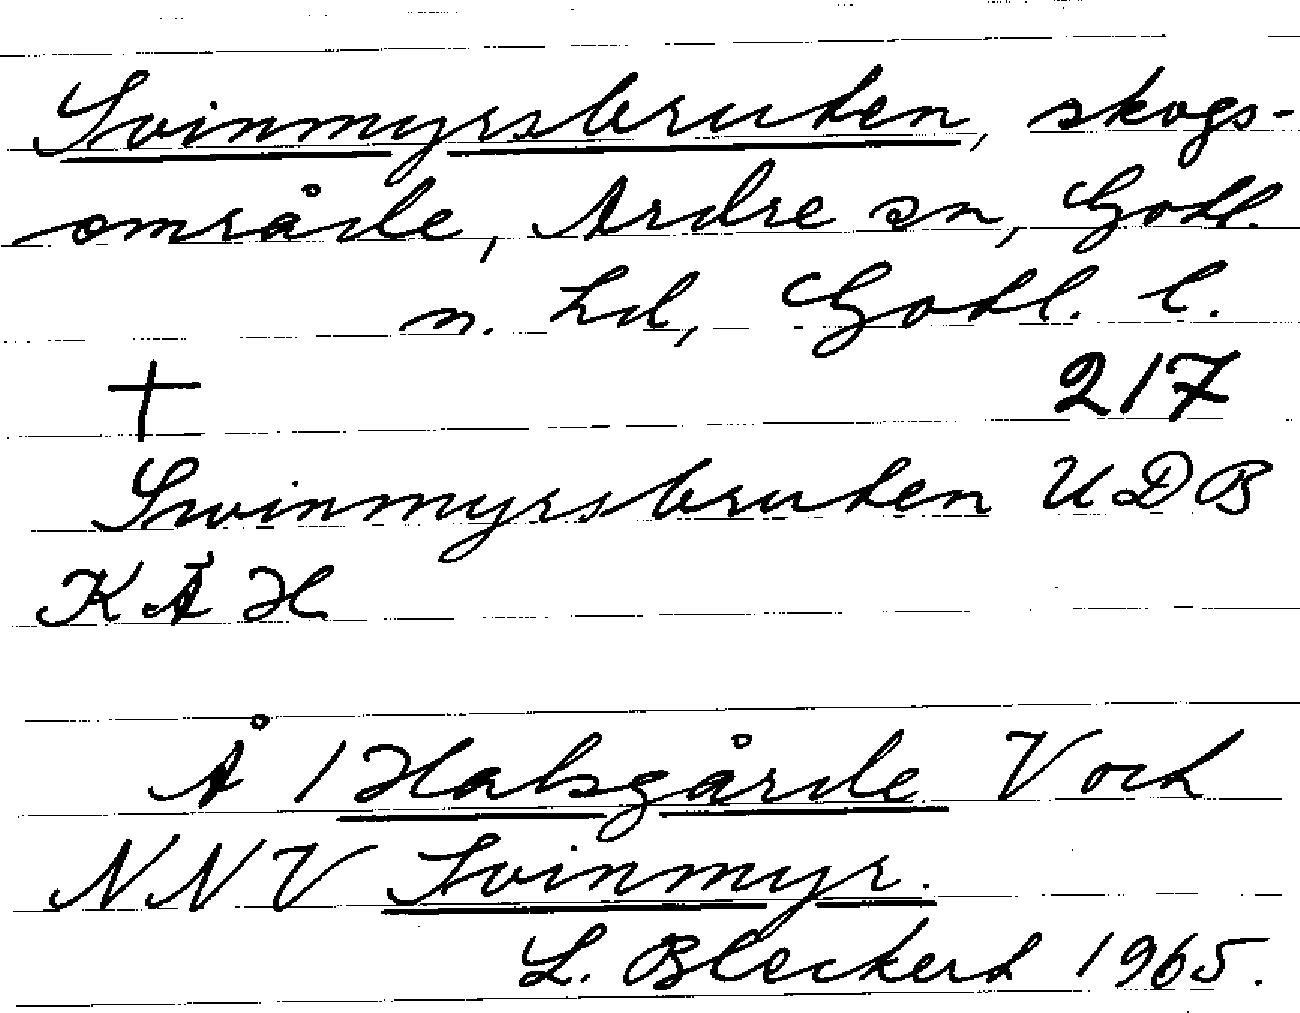 Svinmyrsbruten, skogs-
område, Ardre sn, Gotl.
n. hd, Gotl. l.
† 217
Svinmyrsbruten UDB
KÅH
Å 1 Halsgårde V och
NNV Svinmyr.
L. Bleckert 1965.